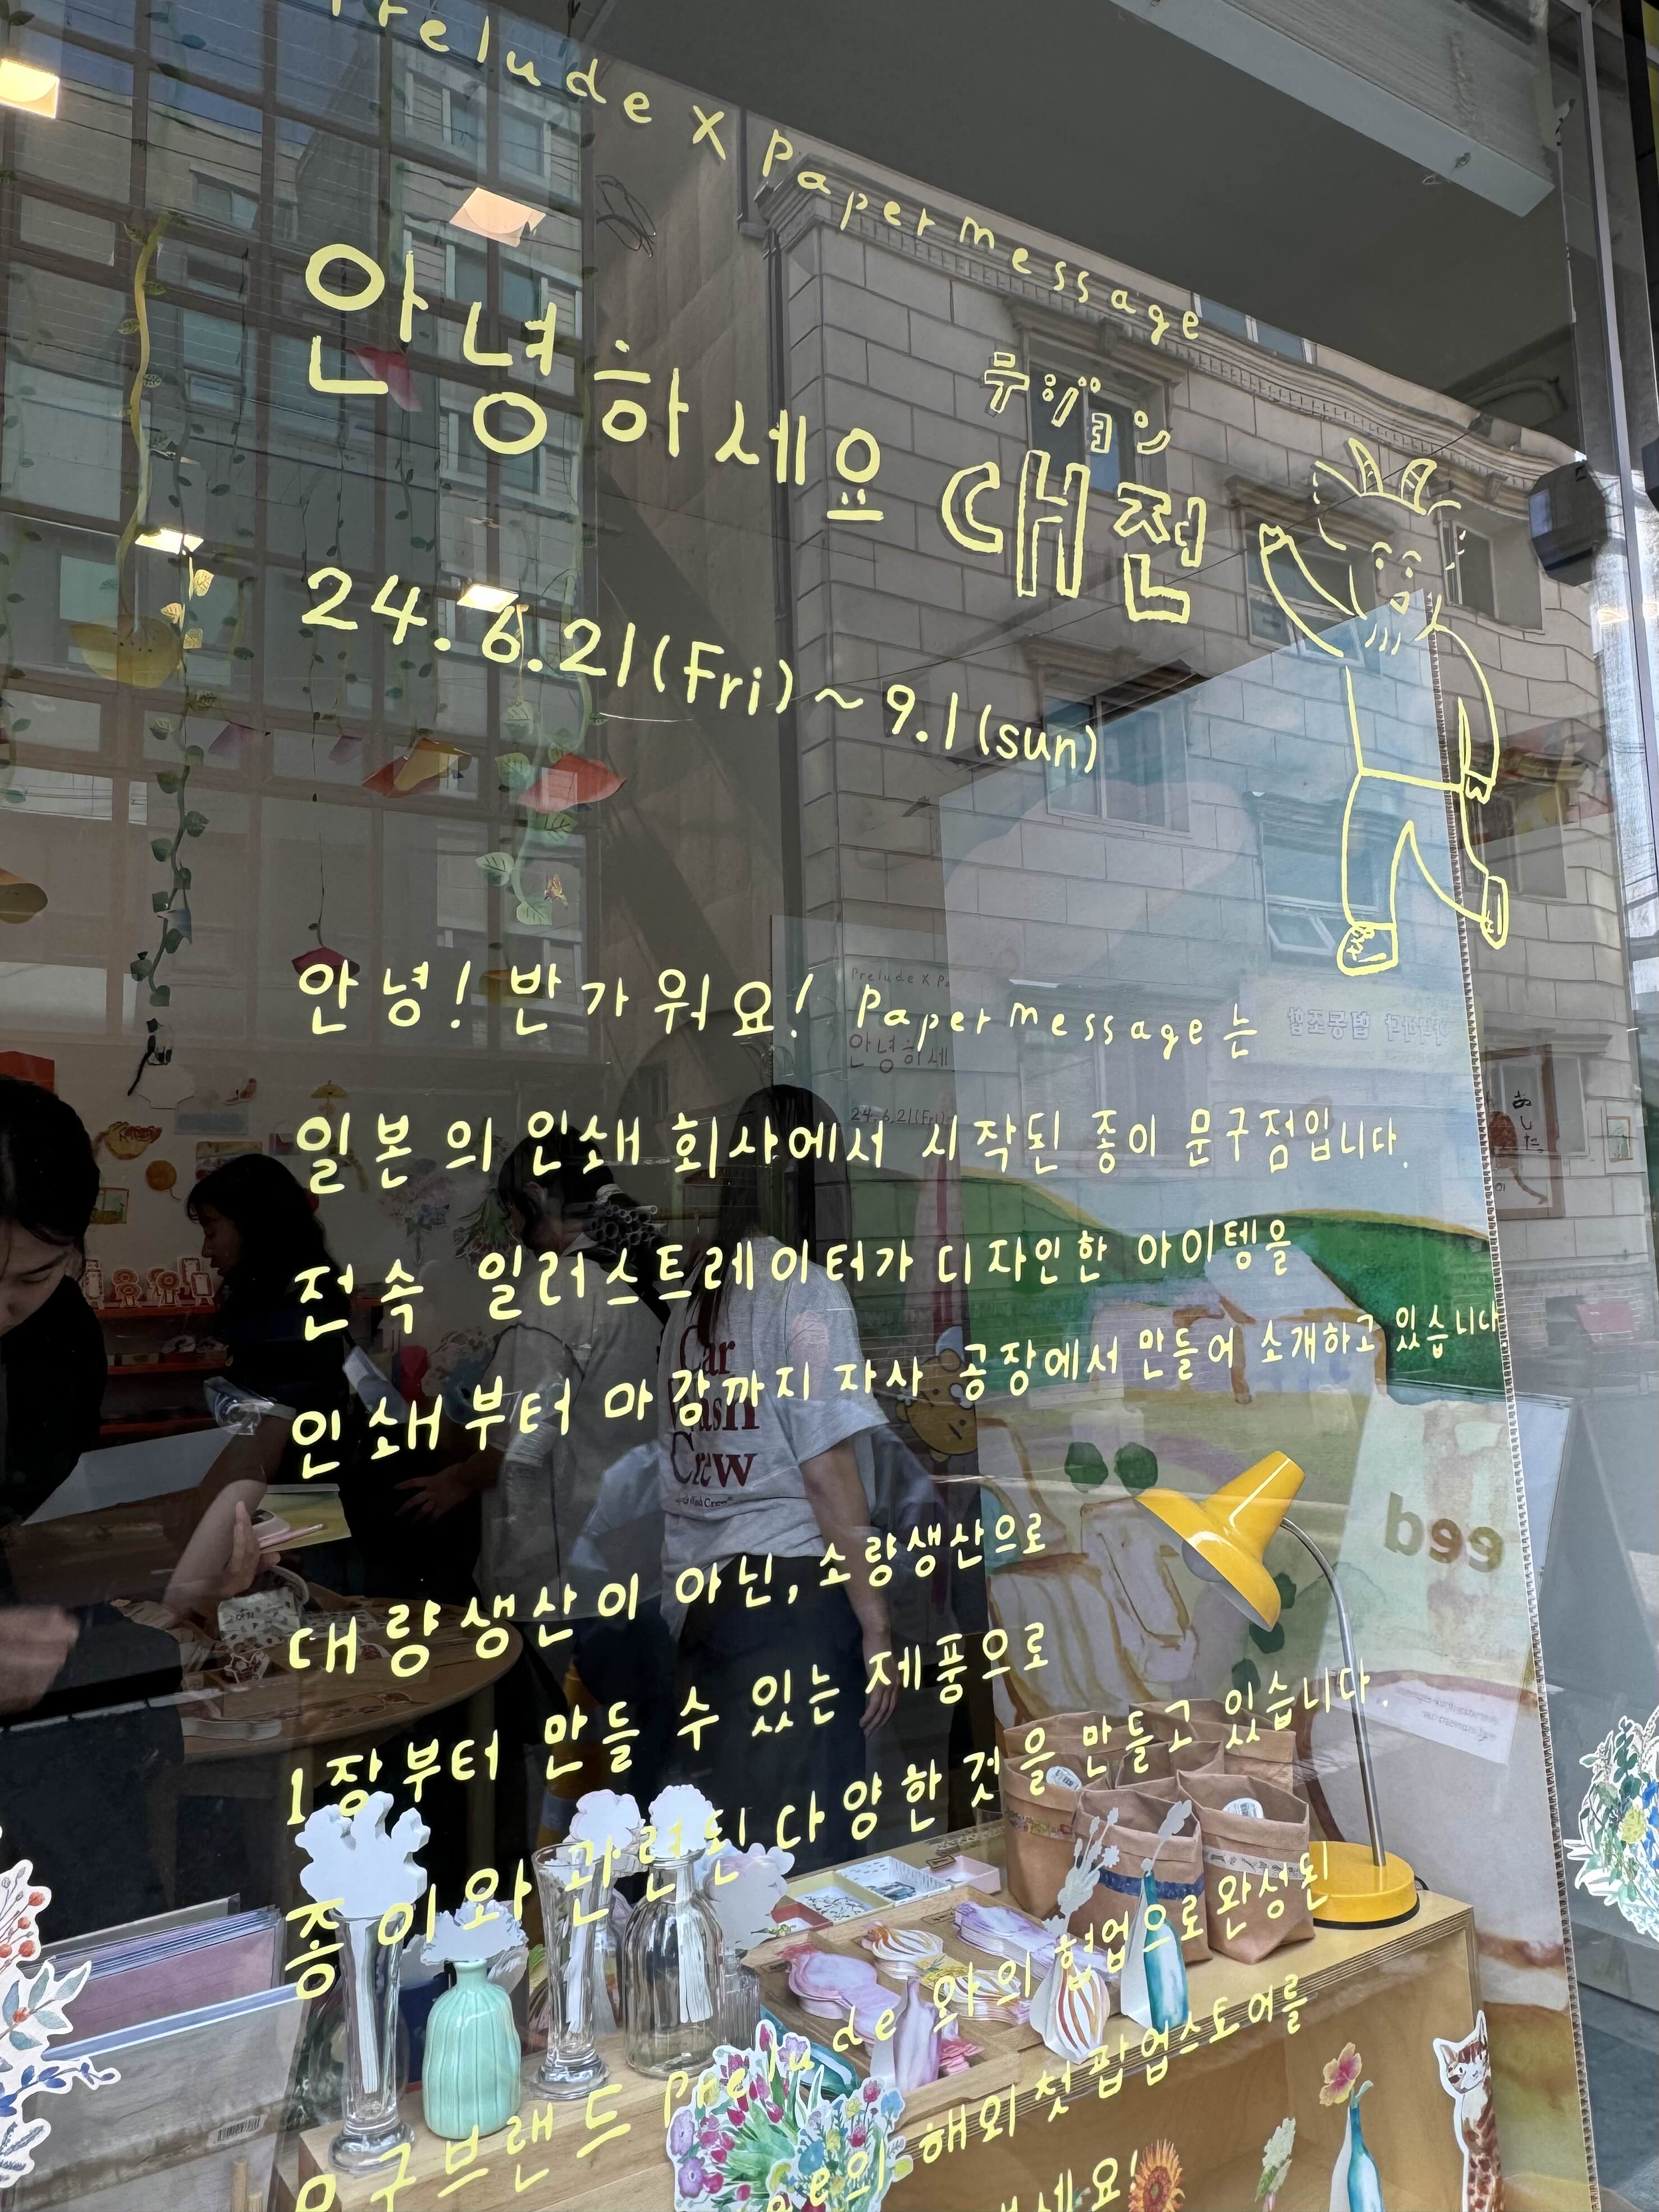 Prelude X Papermessage
テジョン
안녕하세요 대전
24.6.21(Fri)~9.1(sun)
안녕! 반가워요! Papermessage는
일본의 인쇄 회사에서 시작된 종이 문구점입니다.
전속 일러스트레이터가 디자인한 아이템을
인쇄부터 마감까지 자사 공장에서 만들어 소개하고 있습니다
대량생산이 아닌, 소량생산으로
1장부터 만들 수 있는 제품으로
종이와 관련된 다양한 것을 만들고 있습니다.
문구브랜드 Prelude와의 협업으로 완성된
e의 해외 첫 팝업스토어를
세요!
Prelude X Pa
안녕하세
24.6.21(Fri)
Car
Wash
Crew
eed
あした